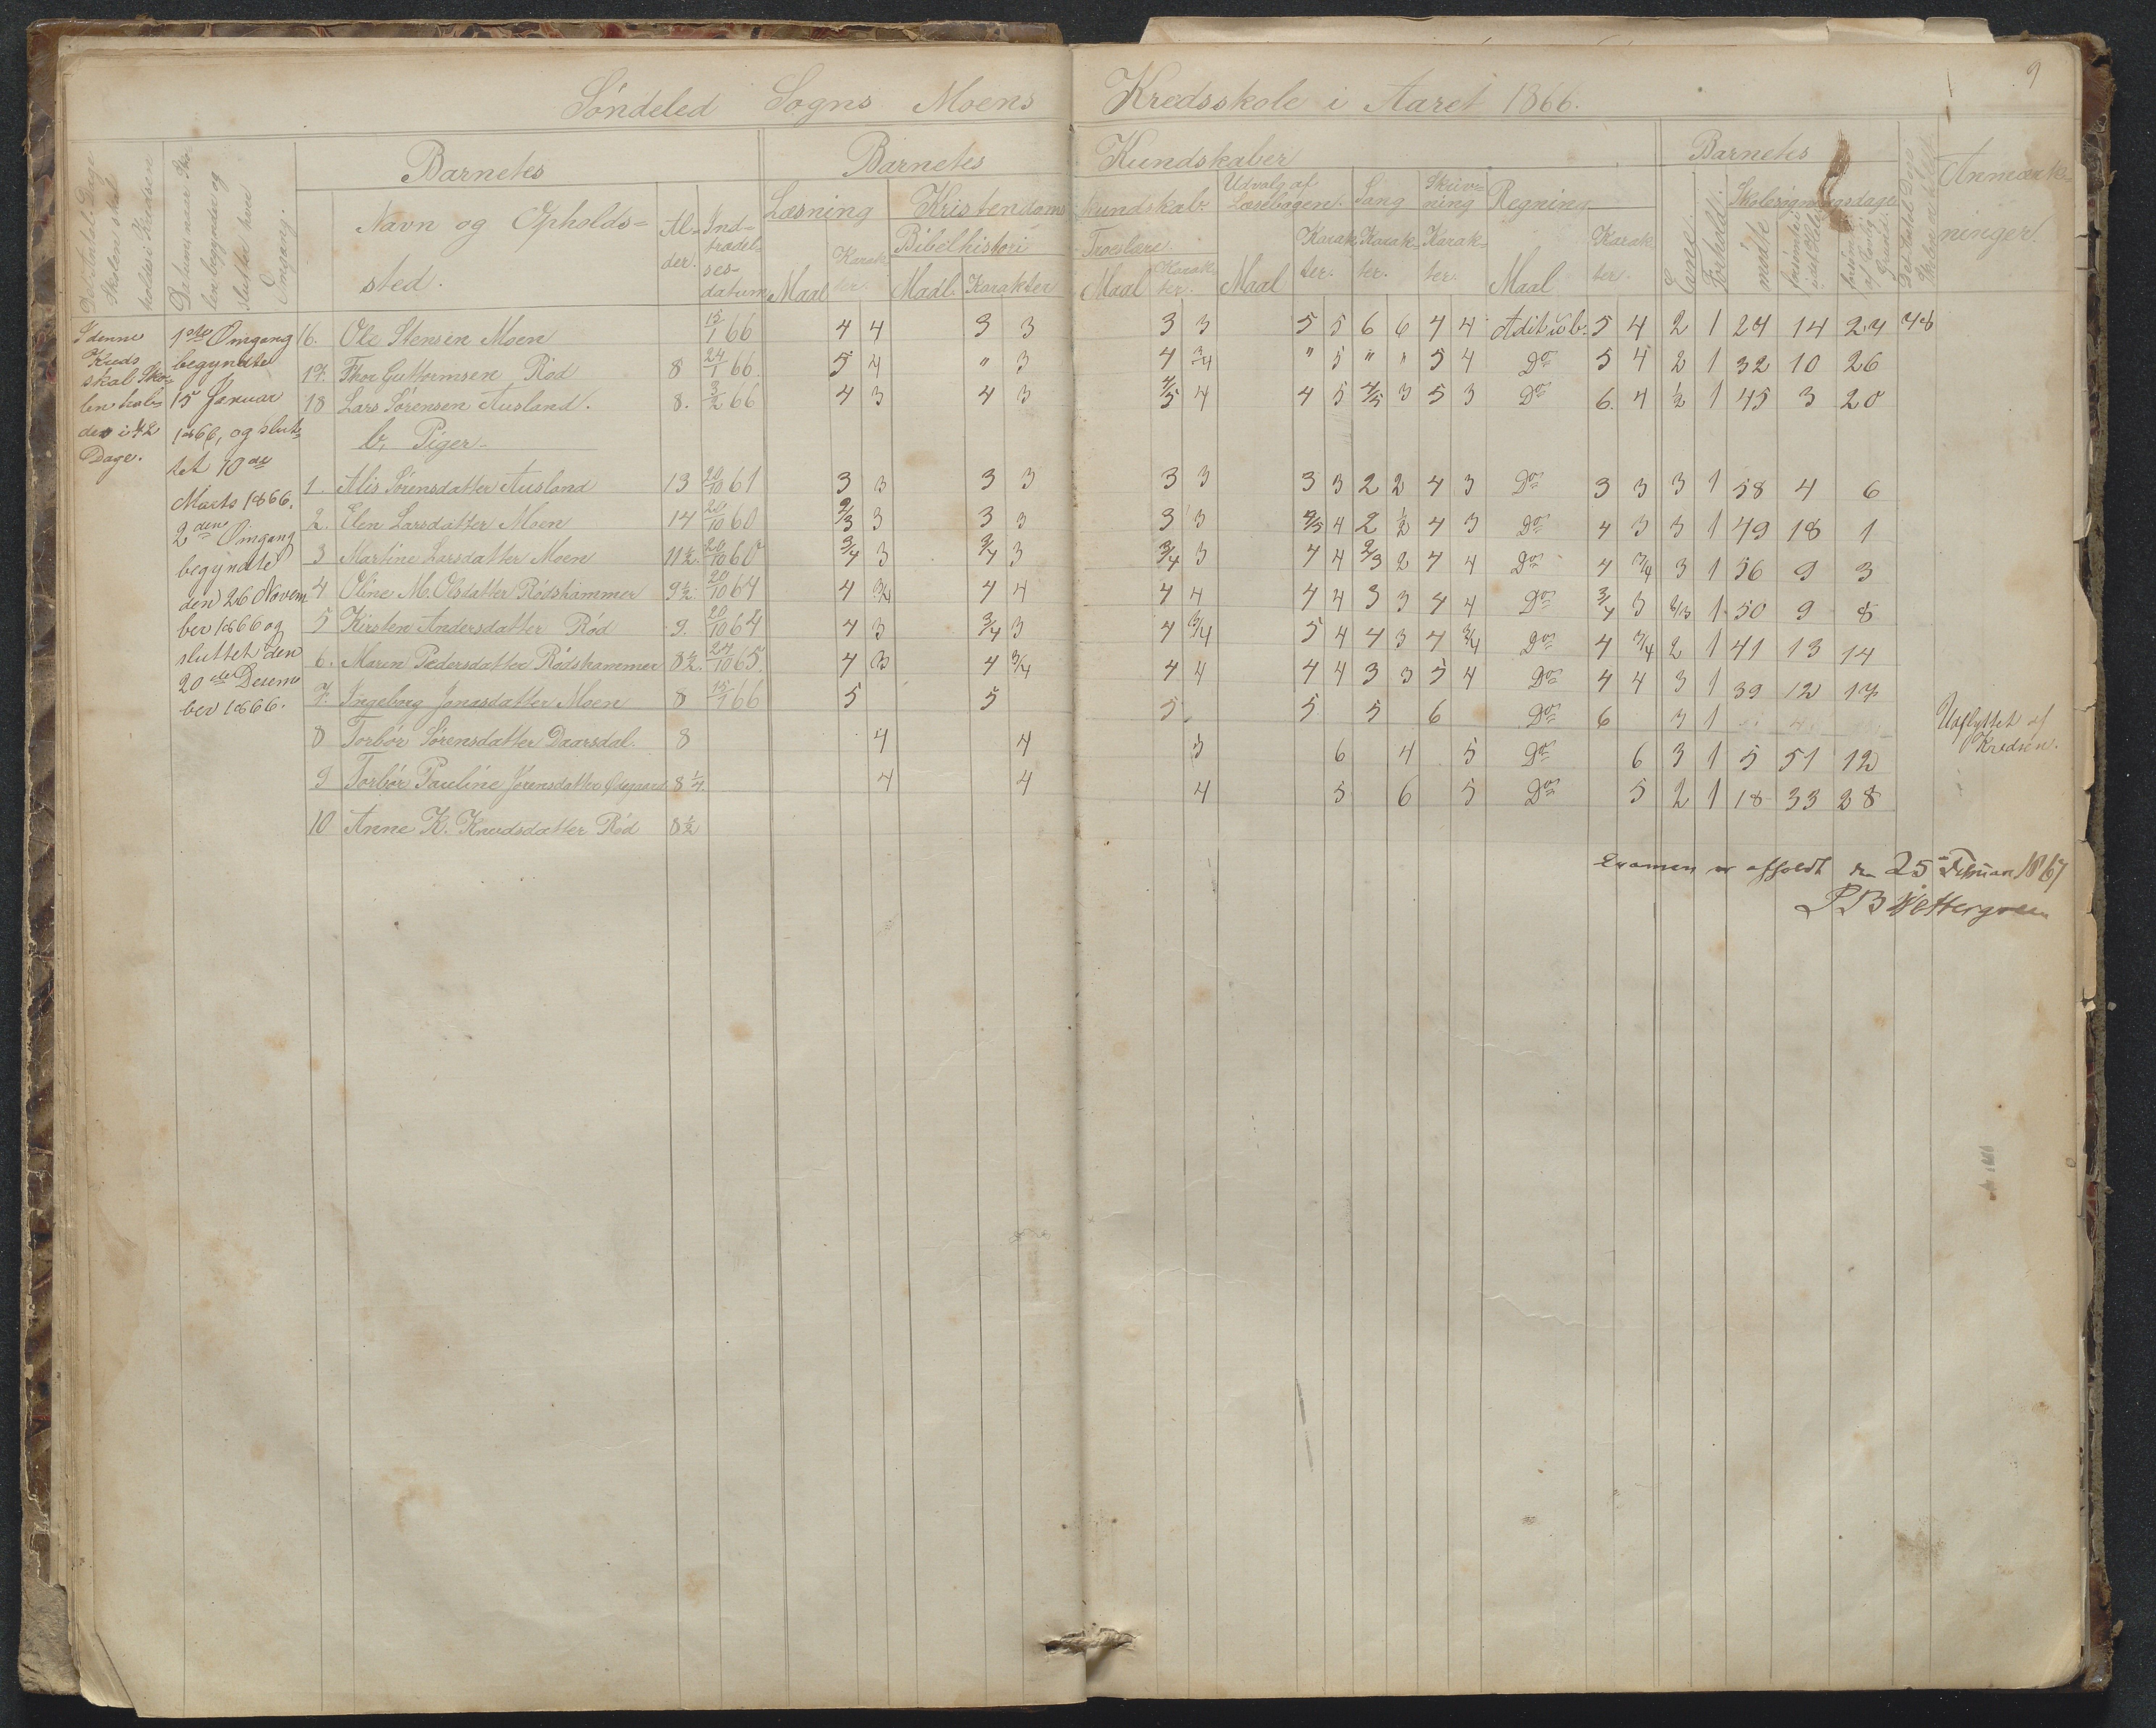 Søndeled Sogns Moens Kredsskole i Aaret 1866.
9
Det Antal Dage Skolen skal holdes i Kredsen
Datum naar Skolen begynder og slutter hver Omgang.
Barnets
Navn og Opholdssted.
Alder.
Indtrædelsesdatum
Barnets Kundskaber
Læsning
Maal Karakter.
Kristendomskundskab.
Bibelhistori
Maal. Karakter
Troeslære
Maal Karakter.
Udvalg af Læsebogen.
Maal Karakter.
Sang Karakter.
Skrivning Karakter.
Regning
Maal Karakter.
Barnets
Evne. Forhold.
Skolesøgningsdage
mødte
forsømte i det Hele
forsømte af lovlig Grund.
Anmærkninger.
I denne
Kreds
skal Sko-
len hol-
des i 72
Dage.
1ste Omgang
begyndte
15 Januar
1866, og slut-
tet 10de
Marts 1866.
2den Omgang
begyndte
den 26 Novem
ber 1866 og
sluttet den
20de Desem
ber 1866.
16. Ole Stensen Moen 15/1 66 4 4 3 3 3 3 5 5 6 6 4 4 Aditio b. 5 4 2 1 24 14 24 78
17. Thor Guttormsen Rød 8 24/1 66. 5 4 " 3 4 3/4 " 5 " " 5 4 Do 5 4 2 1 32 10 26
18 Lars Sørensen Ausland. 8. 3/2 66 4 3 4 3 4/5 4 4 5 4/5 3 5 3 Do 6. 4 1/2 1 45 3 20
b, Piger
1. Alis Sørensdatter Ausland 13 20/10 61 3 3 3 3 3 3 3 3 2 2 4 3 Do 3 3 3 1 58 4 6
2. Elen Larsdatter Moen 14 20/10 60 2/3 3 3 3 3 3 4/5 4 2 1/2 4 3 Do 4 3 3 1 49 18 1
3 Martine Larsdatter Moen 11 1/2. 20/10 60 3/4 3 3/4 3 3/4 3 4 4 2/3 2 4 4 Do 4 3/4 3 1 56 9 3
4 Oline M. Olsdatter Rødshammer 9 1/2. 20/10 64 4 3/4 4 4 4 4 4 4 3 3 4 4 Do 3/4 3 2/3 1 50 9 8
5 Kirsten Andersdatter Rød 9. 20/10 64 4 3 3/4 3 4 3/4 5 4 4 3 4 3/4 Do 4 3/4 2 1 41 13 14
6. Maren Pedersdatter Rødshammer 8 1/2. 24/10 65. 4 3 4 3/4 4 4 4 4 3 3 5 4 Do 4 4 3 1 39 12 17
7. Ingeborg Jonasdatter Moen 8 15/1 66 5 5 5. 5 5 6 Do 6 3 1 Udflyttet af Kredsen.
8 Torbør Sørensdatter Daarsdal. 8 4 4 3 6 4 5 Do 6 3 1 5 51 12
9 Torbør Pauline Jørensdatter Øsegaard 8 1/4. 4 4 4 5 6 5 Do 5 2 1 18 33 28
10 Anne K. Knudsdatter Rød 8 1/2
Examen er afholdt den 25 Februar 1867
P B Wettergreen